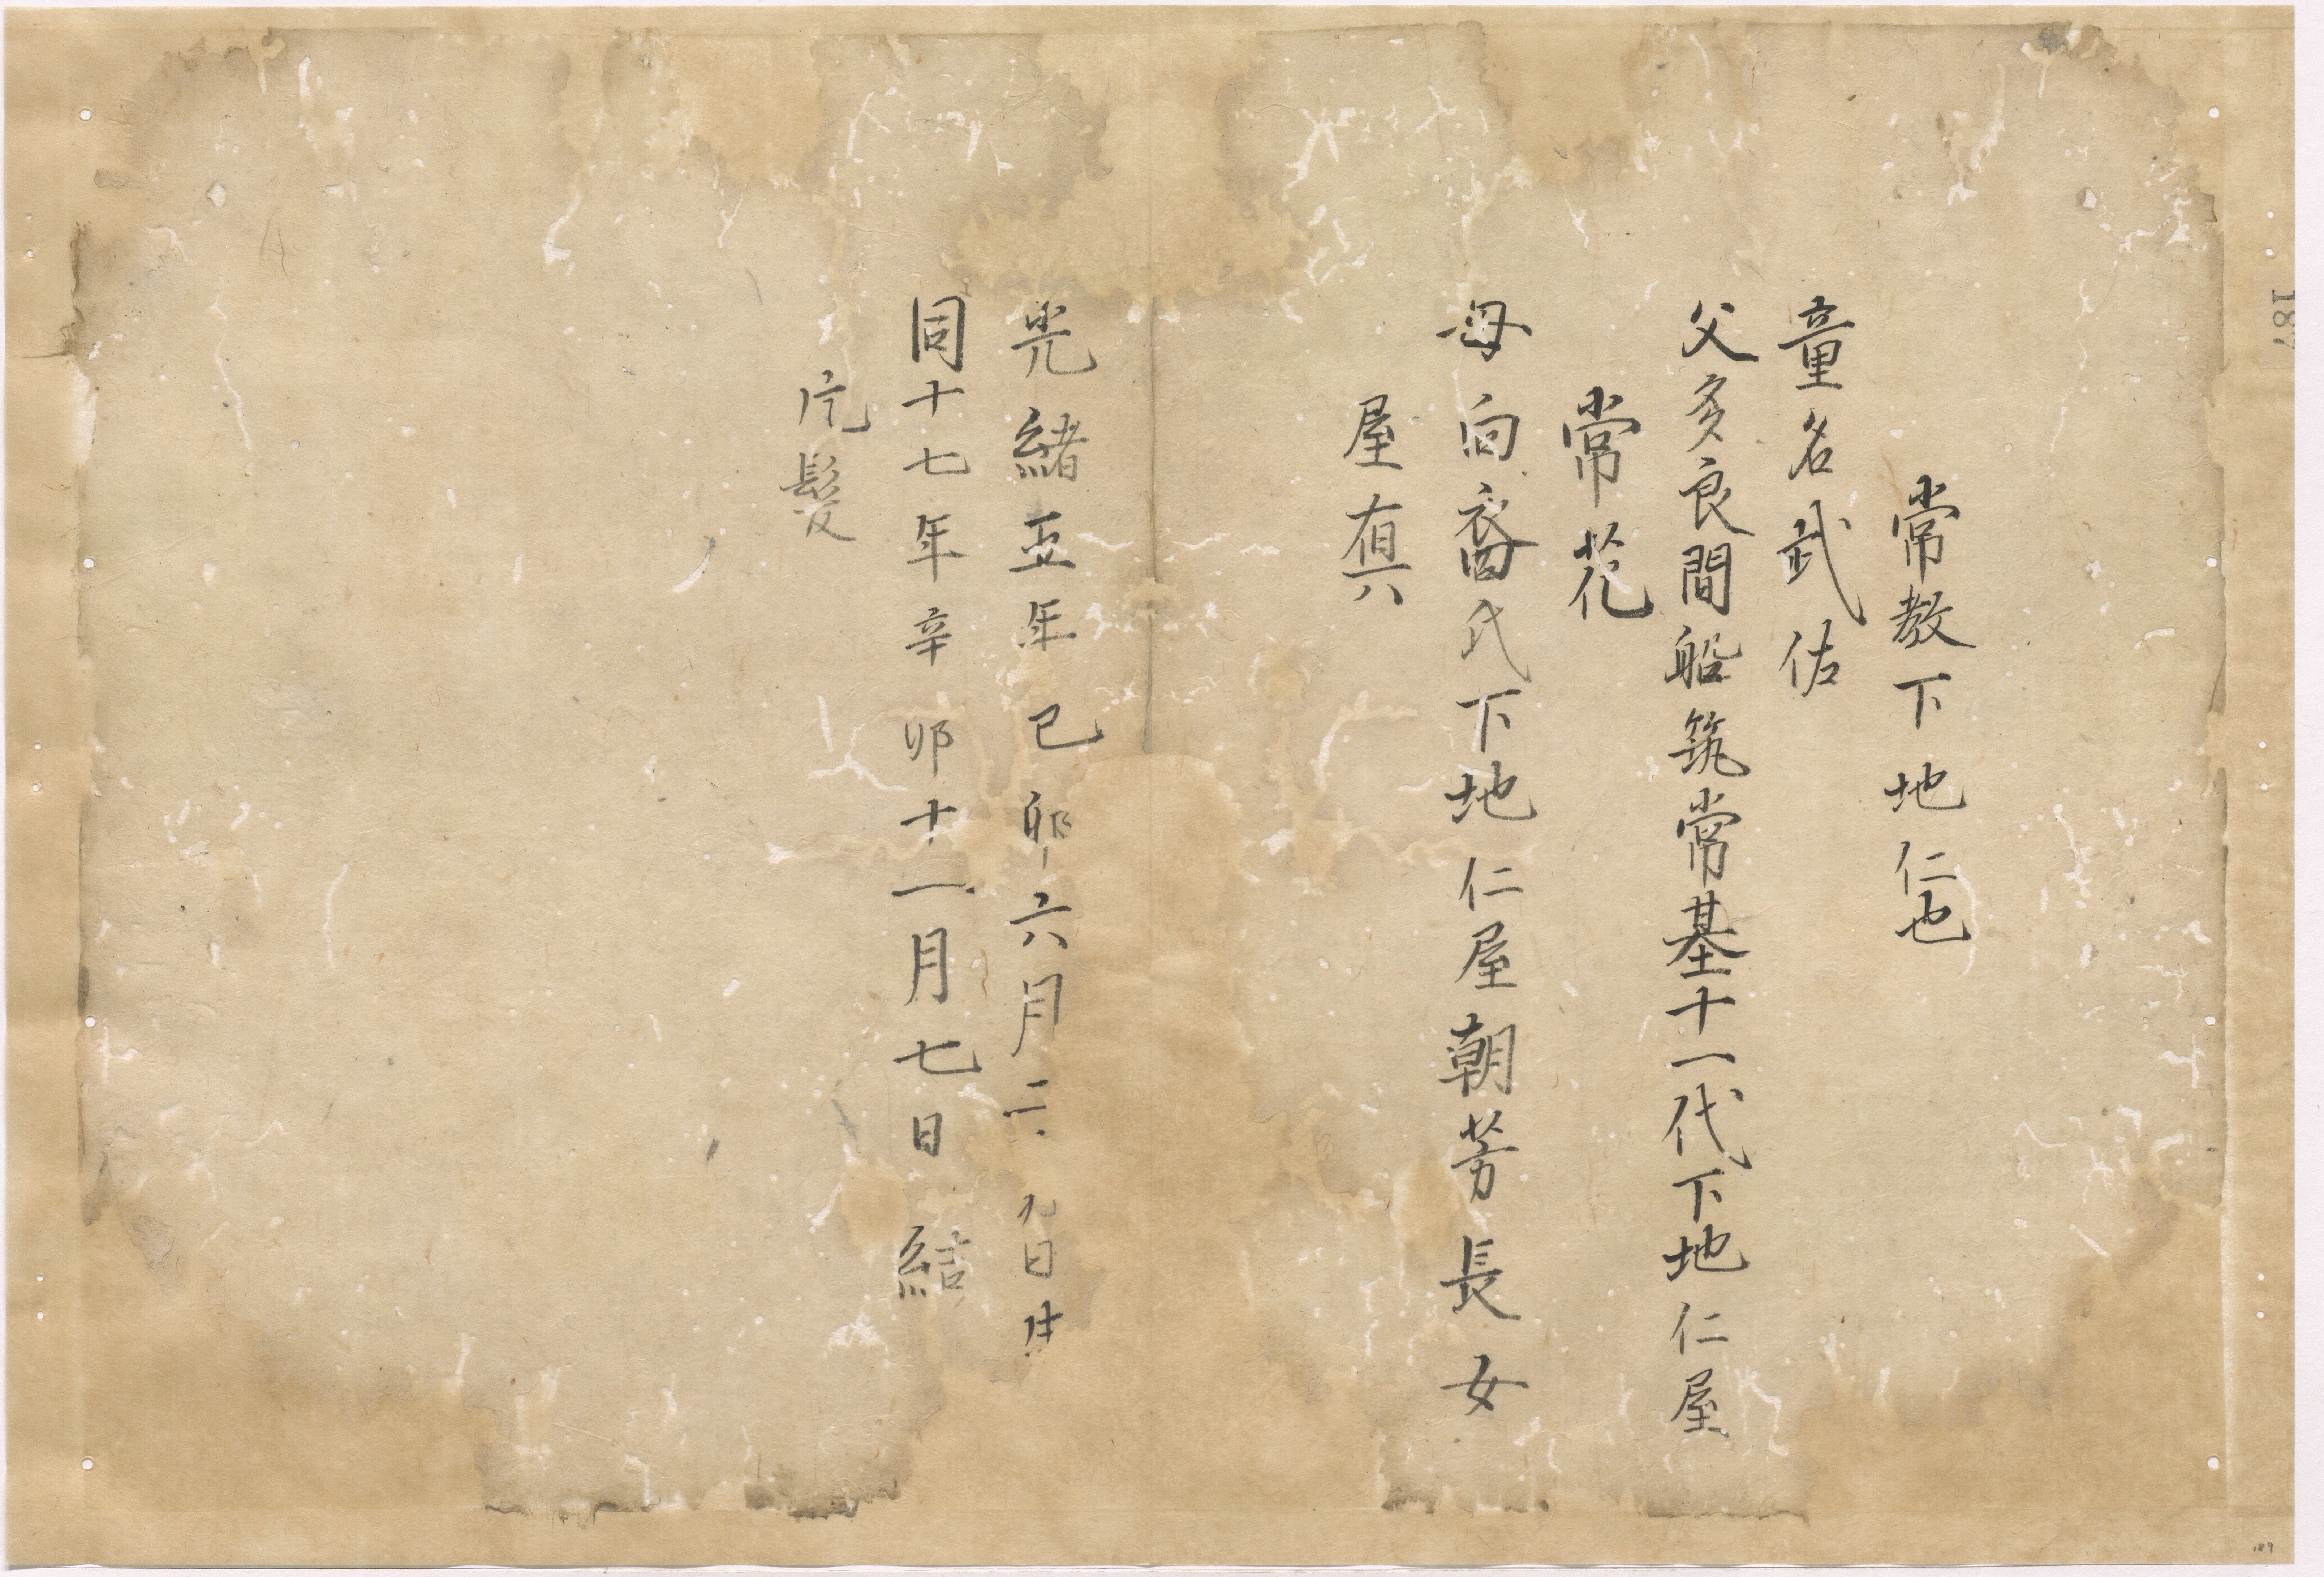 常教下地仁也
童名武佐
父多良間船筑常基十一代下地仁屋
常苑
母向裔氏下地仁屋朝芳長女
屋真
光緒五年己卯六月二九日生
同十七年辛卯十一月七日結
片髪
187
189